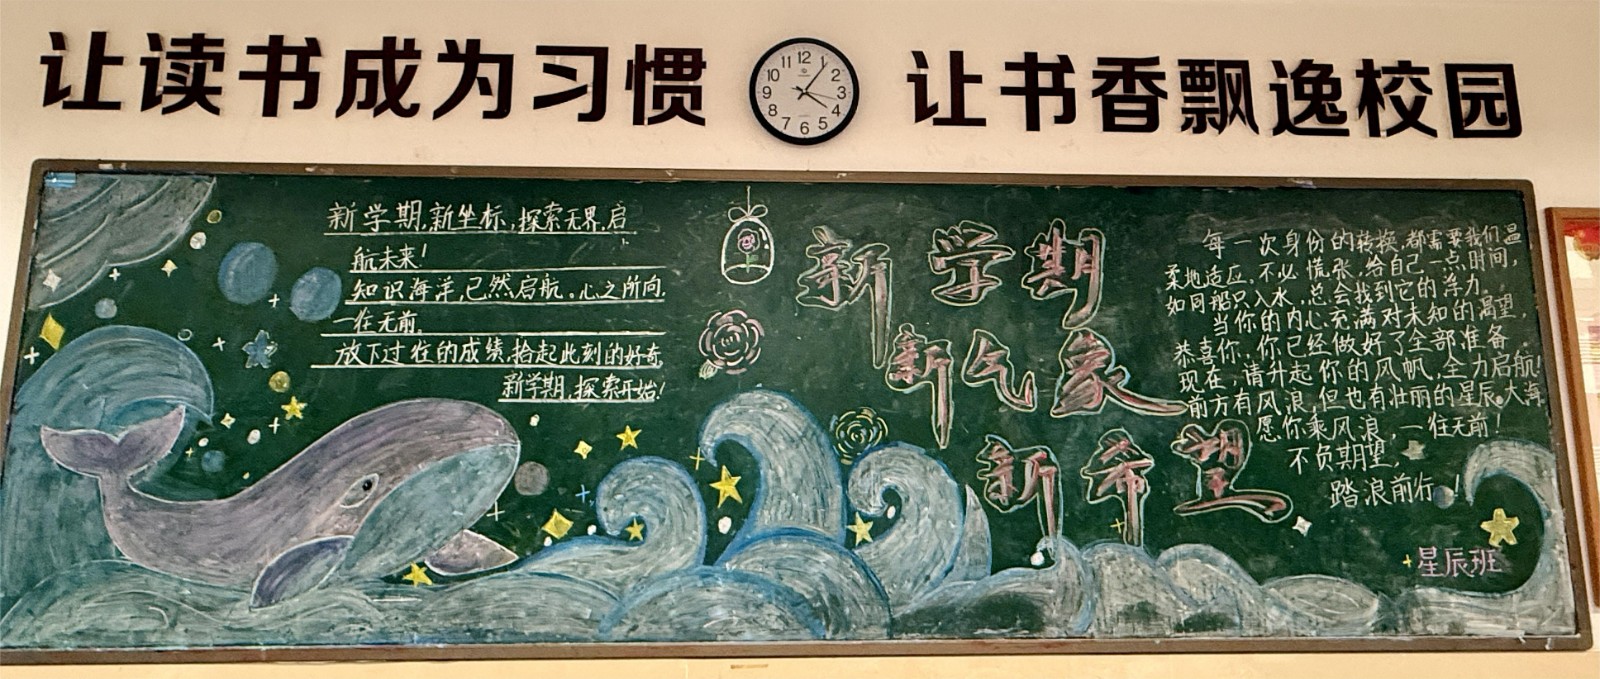 让读书成为习惯
让书香飘逸校园
12
1
2
3
4
5
6
7
8
9
10
11
新学期,新坐标,探索无界,启
航未来!
知识海洋,已然启航。心之所向,
一往无前。
放下过往的成绩,拾起此刻的好奇,
新学期,探索开始!
新学期
新气象
新希望
每一次身份的转换,都需要我们温
柔地适应,不必慌张,给自己一点时间,
如同船只入水,总会找到它的浮力。
当你的内心充满对未知的渴望,
恭喜你,你已经做好了全部准备。
现在,请升起你的风帆,全力启航!
前方有风浪,但也有壮丽的星辰大海。
愿你乘风破浪,一往无前!
不负期望,
踏浪前行!
星辰班